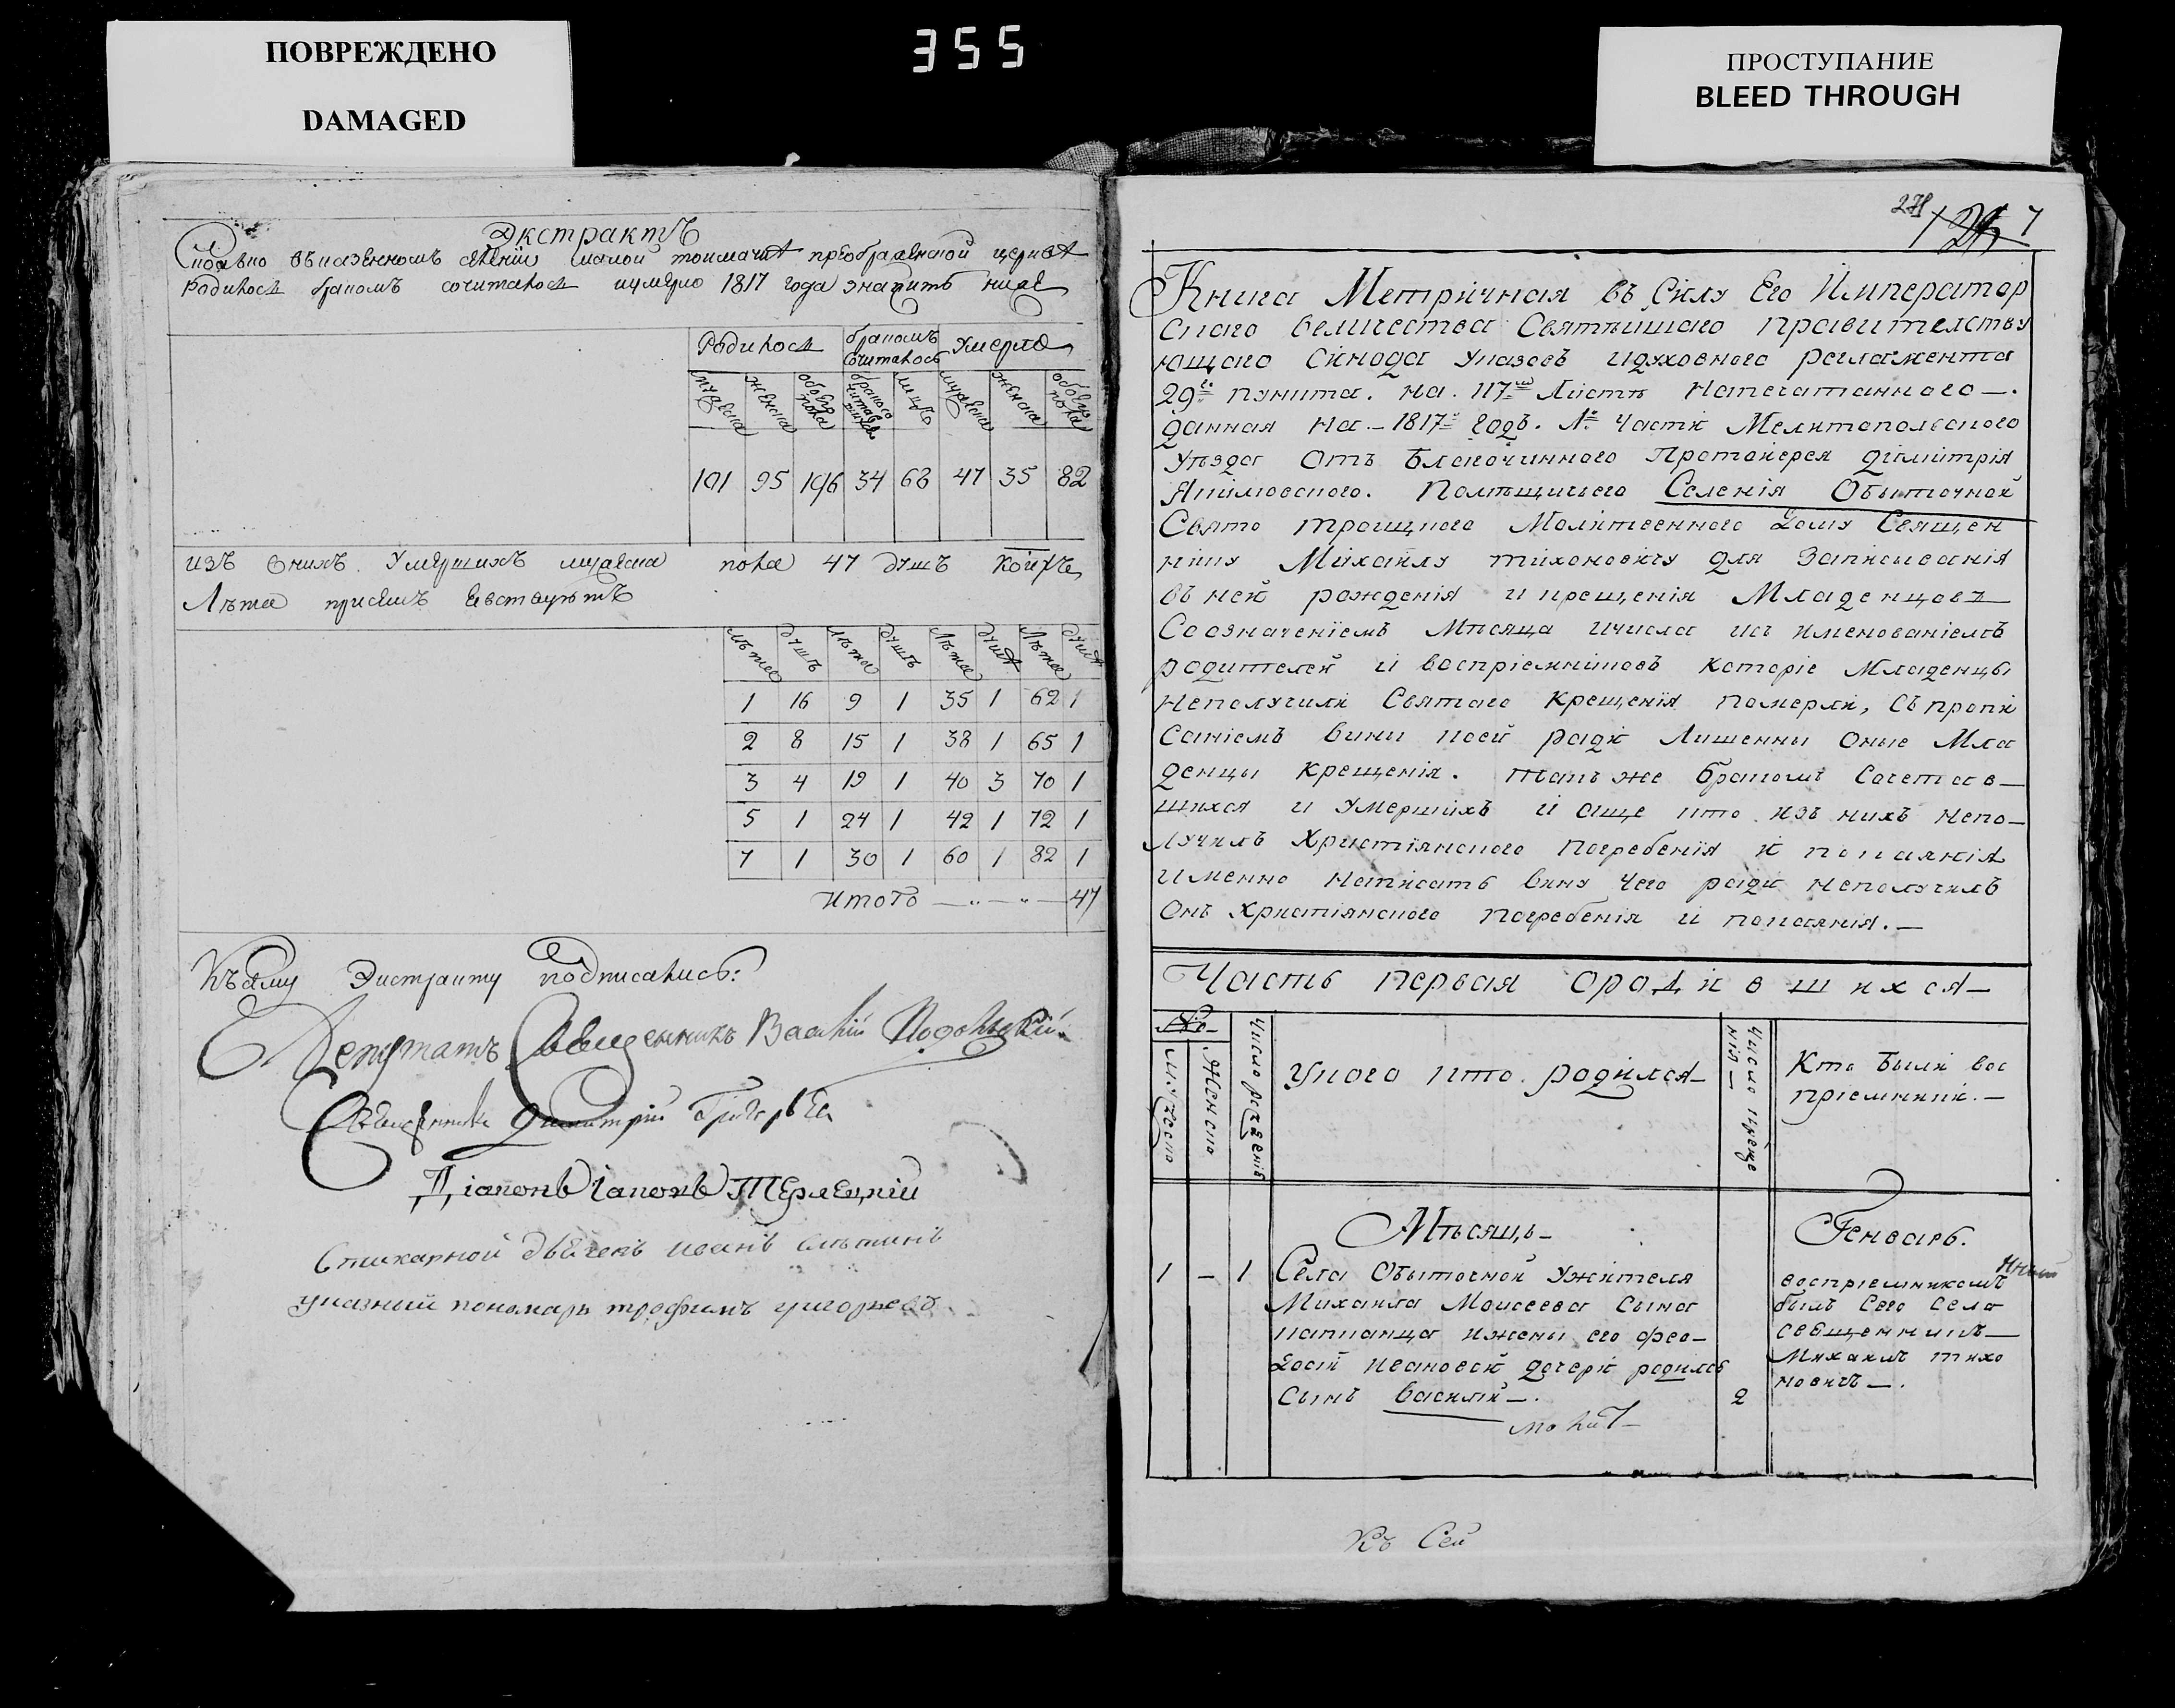 ПОВРЕЖДЕНО
DAMAGED
355
ПРОСТУПАНИЕ
BLEED THROUGH
Экстрактъ
Сколько въ казенномъ селенїи малой токмачки преображенской церкве
Родилось бракомъ сочиталось и умерло 1817 года значитъ ниже
Родилось бракомъ Сочиталось Умерло
мужеска женска обоего пола бракосочитавшихся лицъ мужеска женска обоего пола
101 95 196 34 68 47 35 82
изъ Онихъ Умершихъ мужеска пола 47 душъ коихъ
Лѣта присемъ Евствуютъ
лѣта душъ лѣта душъ Лѣта душъ Лѣта душъ
1 16 9 1 35 1 62 1
2 8 15 1 38 1 65 1
3 4 19 1 40 3 70 1
5 1 24 1 42 1 72 1
7 1 30 1 60 1 82 1
Итого 47
Къ сему Экстракту подписались:
Депутатъ Священникъ Василїй Подольскїй
Священникъ Димитрїй Григорьевъ
Дїаконъ Iаковъ Терлецкїй
Стихарной дьячекъ Иванъ
указный пономарь трофимъ григорьевъ
278
Книга Метричная въ Силу Его Император
скаго Величества Святѣйшаго Правителству
ющаго Синода Указовъ и духовнаго регламента
29го пункта. на. 117мъ Листѣ Напечатанного —.
данная на – 1817й годъ. № Части Мелитополского
Уѣзда Отъ Благочинного Протоїерея димитрїя
Якимовского. Помѣщичьего Селенїя Обыточной
Свято троицкого Молитвенного Дому Священ
нику Михаилу тихоновичу для Записыванїя
въ ней рожденїя и крещенїя Младенцовъ
Со означенїемъ Мѣсяца и числа и съ именованїемъ
родителей и воспрїемниковъ которїе Младенцы
неполучили Святаго Крещенїя померли, Съ пропи
санїемъ вини коей ради Лишенны Оные Мла
денцы крещенїя. такъ же бракомъ Сочетав–
шихся и Умершихъ и аще кто изъ нихъ непо–
лучилъ Христїянского погребенїя и покаянїя
именно написать вину чего ради неполучилъ
Онъ Христїянского погребенїя и покаянїя.—
Часть первая ородившихся—
№
Мужеско
Женско
Число рожденїя
Укого кто родился—
Число креще
нїя —
Кто были вос
прїемники.—
Мѣсяцъ– Генварь.
1 – 1 Села Обыточной Ужителя
Михаила Моисеева Сына
капканца ижены его фео–
досїи Ивановой дочери родился
Сынъ Василїй –. 2
воспрїемникомъ
былъ Сего Села
священникъ—
Михаилъ тихо
новичъ —.
Къ Сей